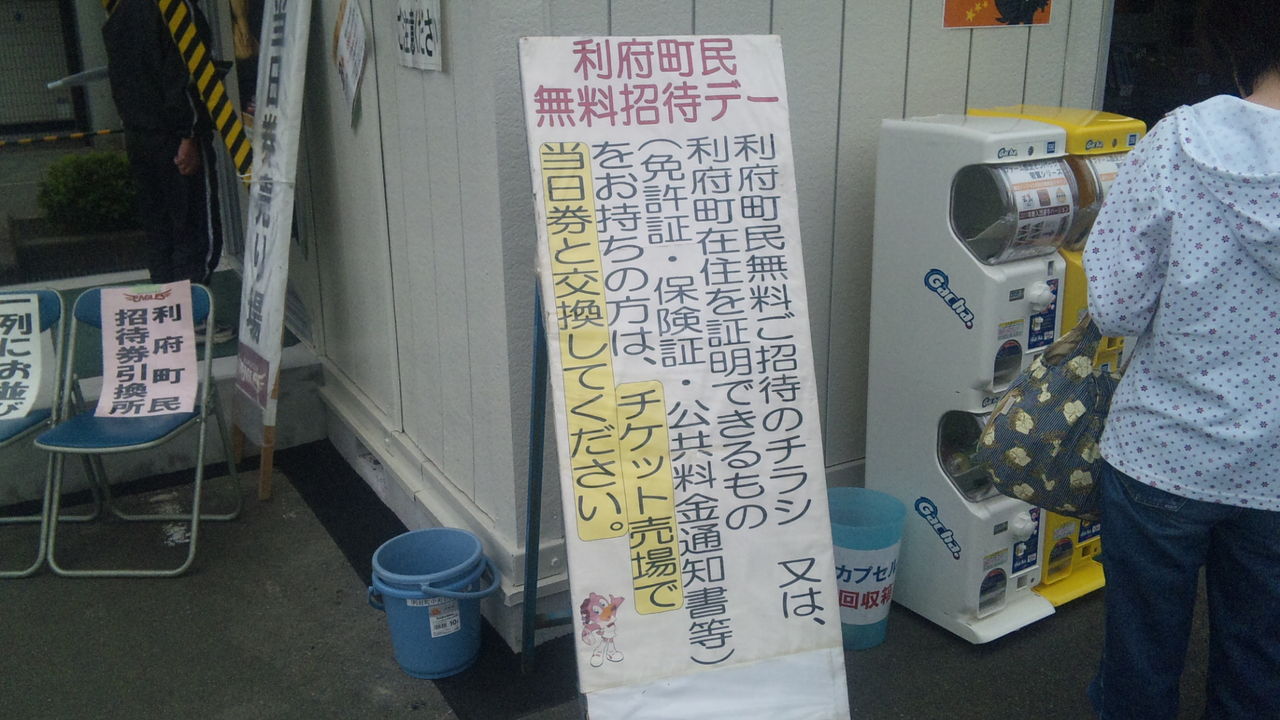 利府町民
無料招待デー
利府町民無料ご招待のチラシ 又は、
利府町在住を証明できるもの
(免許証・保険証・公共料金通知書等)
をお持ちの方は、チケット売場で
当日券と交換してください。
当日券売り場
ご注意ください
EAGLES
利府町民
招待券引換所
一列にお並び
Gacha
Gacha
Gacha.
Gacha.
カプセル
回収箱